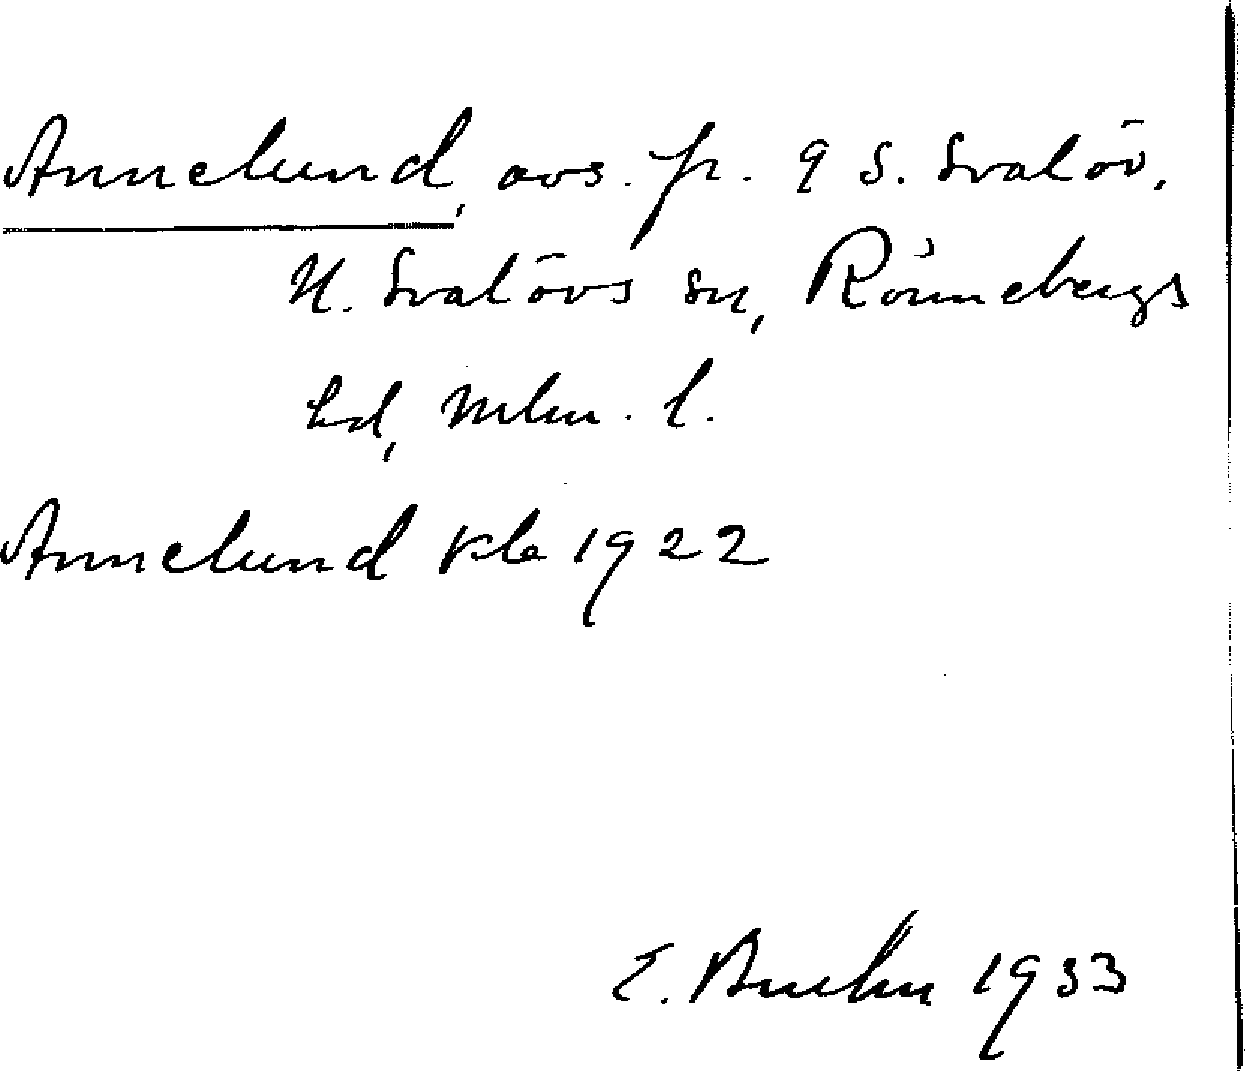 Annelund, avs. fr. 9 S. Svalöv,
N. Svalövs sn, Rönnebergs
hd, Mlm. l.
Annelund kla 1922
E. 1933